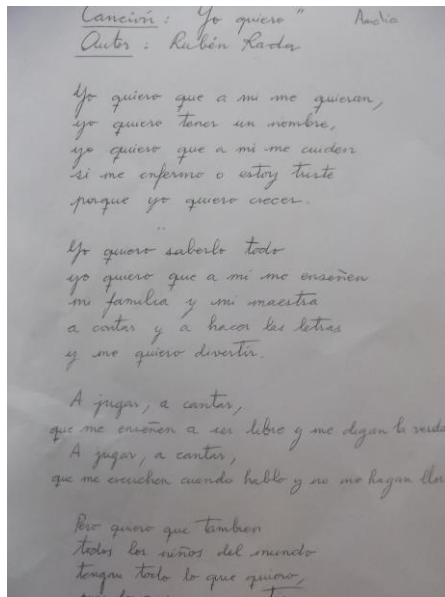 Canción : "Yo quiero" Amalia
Autor : Rubén Rada
Yo quiero que a mi me quieran,
yo quiero tener un nombre,
yo quiero que a mi me cuiden
si me enfermo o estoy triste
porque yo quiero crecer.
Yo quiero saberlo todo
yo quiero que a mi me enseñen
mi familia y mi maestra
a contar y a hacer las letras
y me quiero divertir.
A jugar, a cantar,
que me enseñen a ser libre y me digan la verda
A jugar, a cantar,
que me escuchen cuando hablo y no me hagan llor
Pero quiero que tambien
todos los niños del mundo
tengan todo lo que quiero,